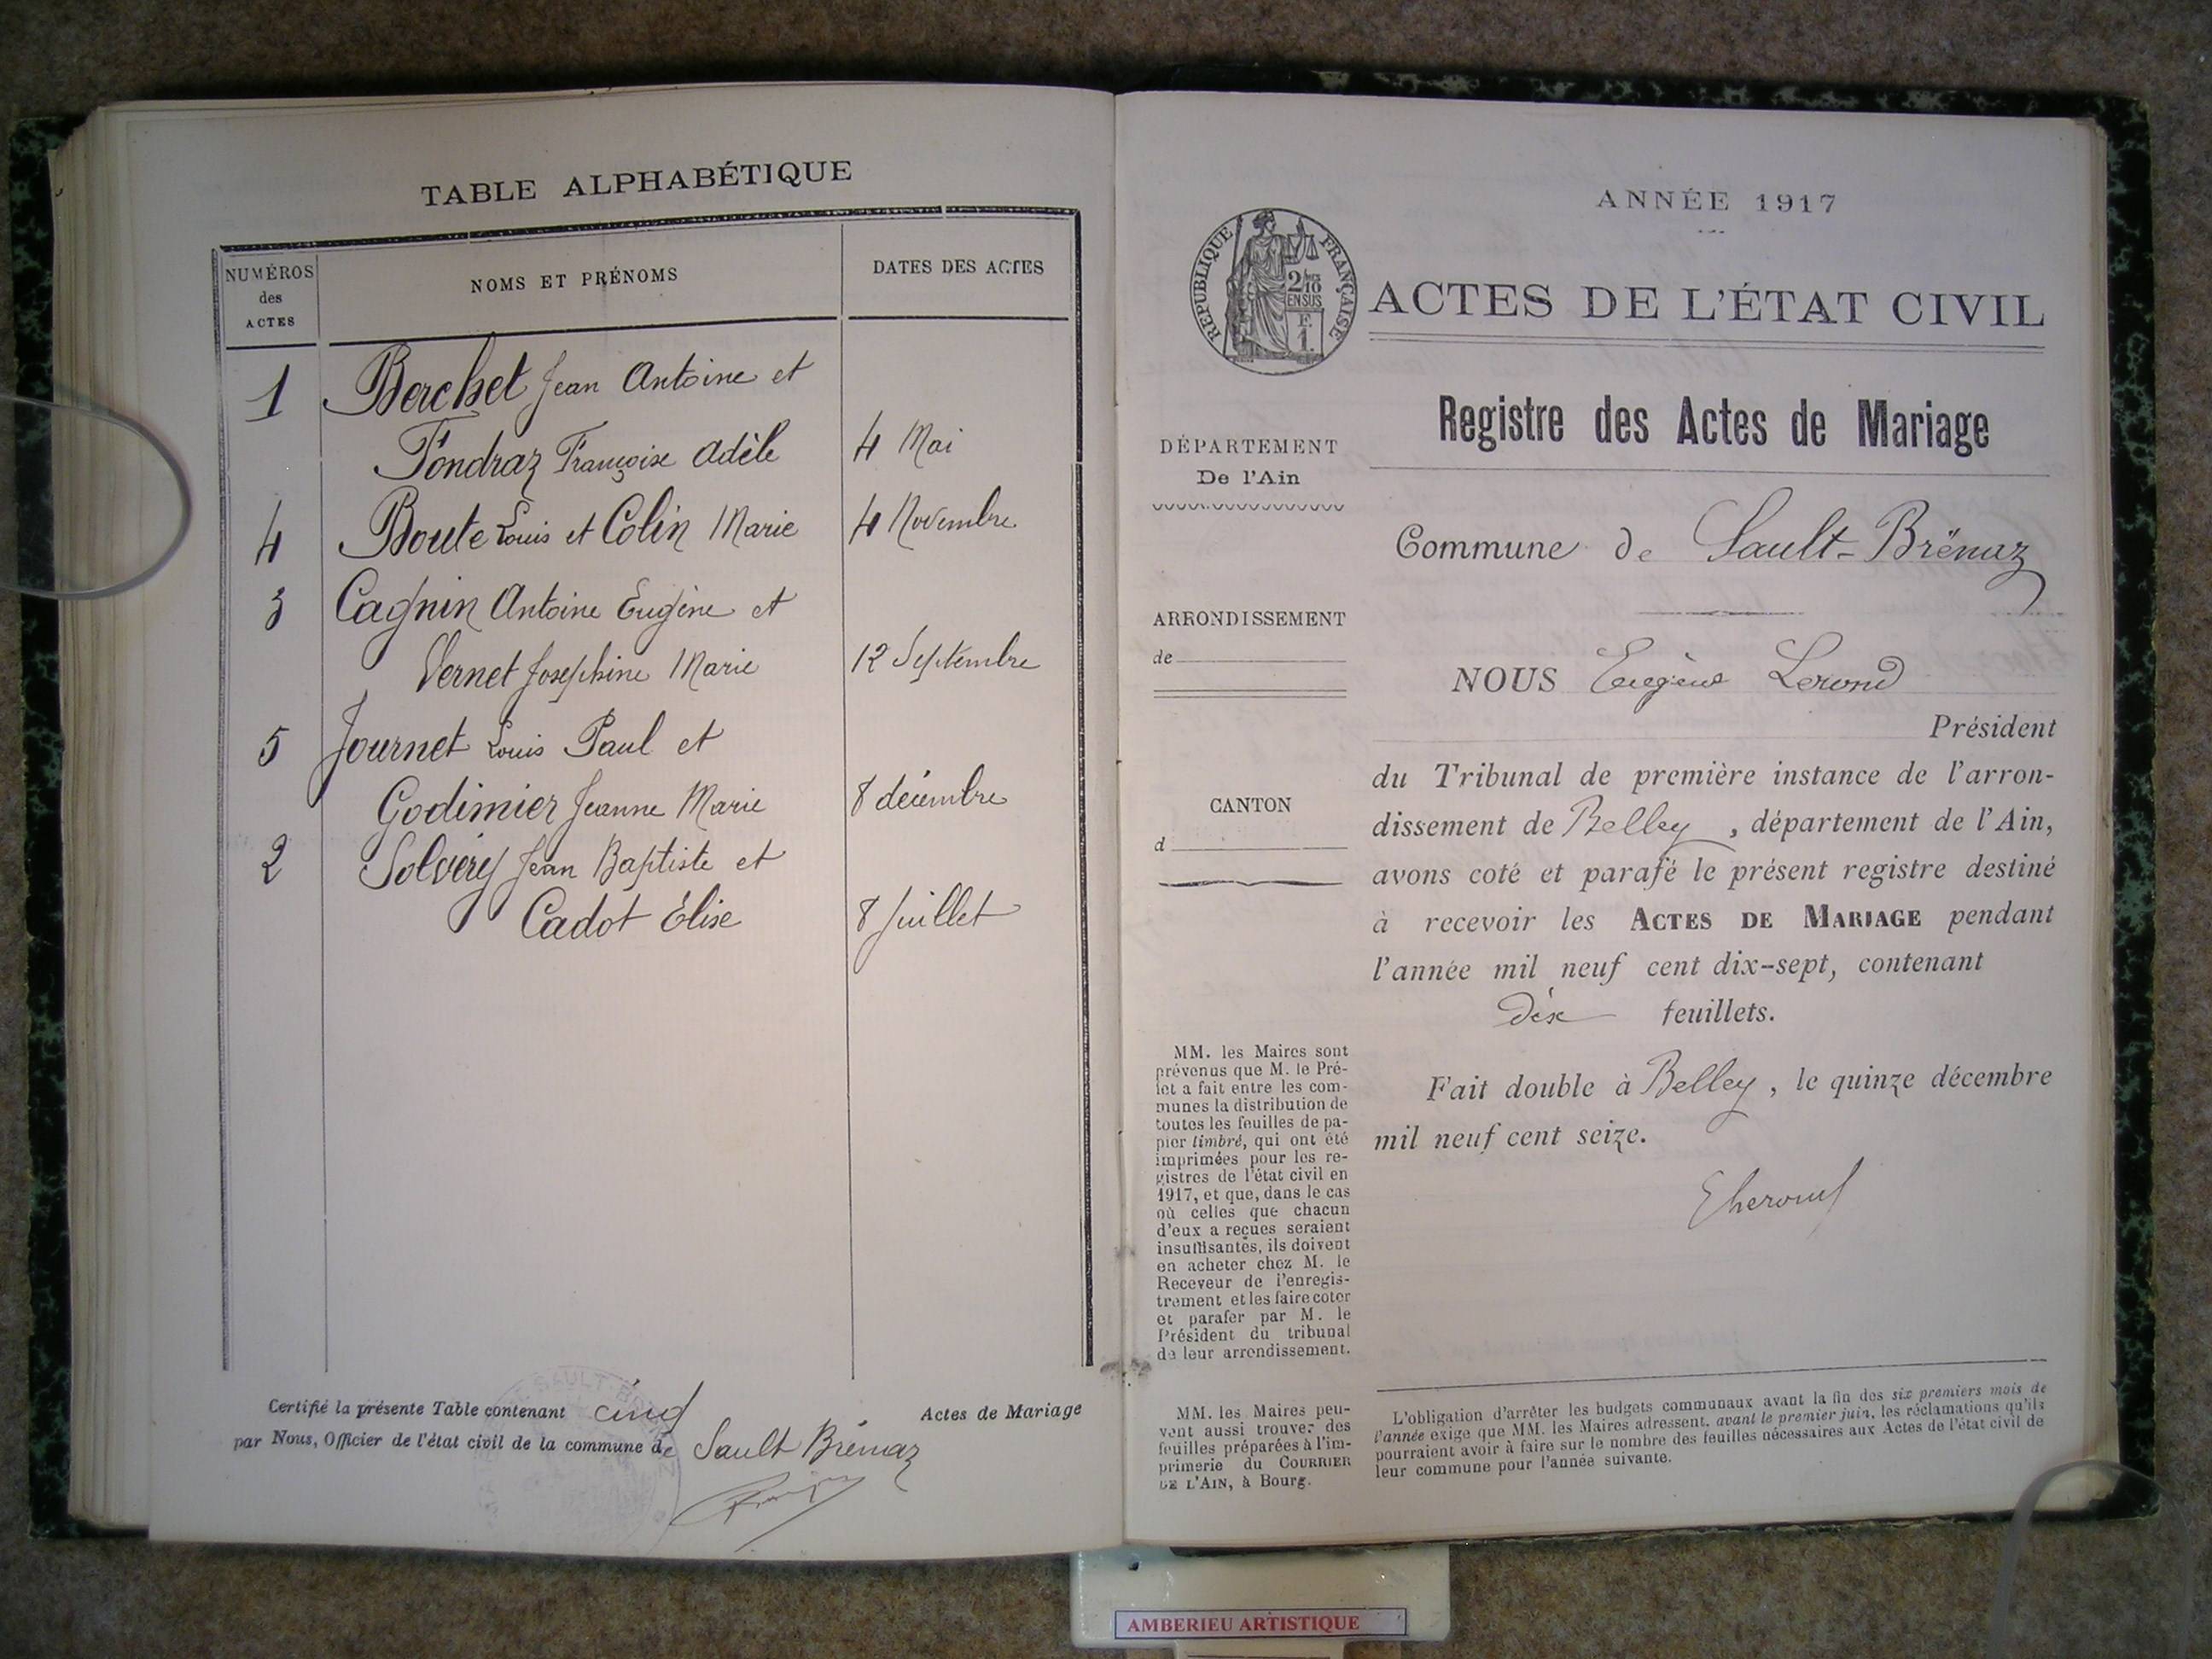 TABLE ALPHABÉTIQUE
NUMÉROS
des
ACTES
NOMS ET PRÉNOMS
DATES DES ACTES
1 Berchet Jean Antoine et
Fondraz Françoise Adèle 4 Mai
4 Boute Louis et Colin Marie 4 Novembre
3 Cagnin Antoine Eugène et
Vernet Joséphine Marie 12 Septembre
5 Journet Louis Paul et
Godimier Jeanne Marie 8 décembre
2 Solvery Jean Baptiste et
Cadot Élise 8 Juillet
Certifié la présente Table contenant cinq Actes de Mariage
par Nous, Officier de l'état civil de la commune de Sault Brénaz
ANNÉE 1917
RÉPUBLIQUE FRANÇAISE
2/10
EN SUS
F.
1.
ACTES DE L'ÉTAT CIVIL
Registre des Actes de Mariage
DÉPARTEMENT
De l'Ain
ARRONDISSEMENT
de
CANTON
d
Commune de Sault-Brénaz
NOUS Eugène
Président
du Tribunal de première instance de l'arron-
dissement de Belley, département de l'Ain,
avons coté et parafé le présent registre destiné
à recevoir les ACTES DE MARIAGE pendant
l'année mil neuf cent dix-sept, contenant
Dix feuillets.
Fait double à Belley, le quinze décembre
mil neuf cent seize.
MM. les Maires sont
prévenus que M. le Pré-
fet a fait entre les com-
munes la distribution de
toutes les feuilles de pa-
pier timbré, qui ont été
imprimées pour les re-
gistres de l'état civil en
1917, et que, dans le cas
où celles que chacun
d'eux a reçues seraient
insuffisantes, ils doivent
en acheter chez M. le
Receveur de l'enregis-
trement et les faire coter
et parafer par M. le
Président du tribunal
de leur arrondissement.
MM. les Maires peu-
vent aussi trouver des
feuilles préparées à l'im-
primerie du COURRIER
DE L'AIN, à Bourg.
L'obligation d'arrêter les budgets communaux avant la fin des six premiers mois de
l'année exige que MM. les Maires adressent, avant le premier juin, les réclamations qu'ils
pourraient avoir à faire sur le nombre des feuilles nécessaires aux Actes de l'état civil de
leur commune pour l'année suivante.
AMBERIEU ARTISTIQUE